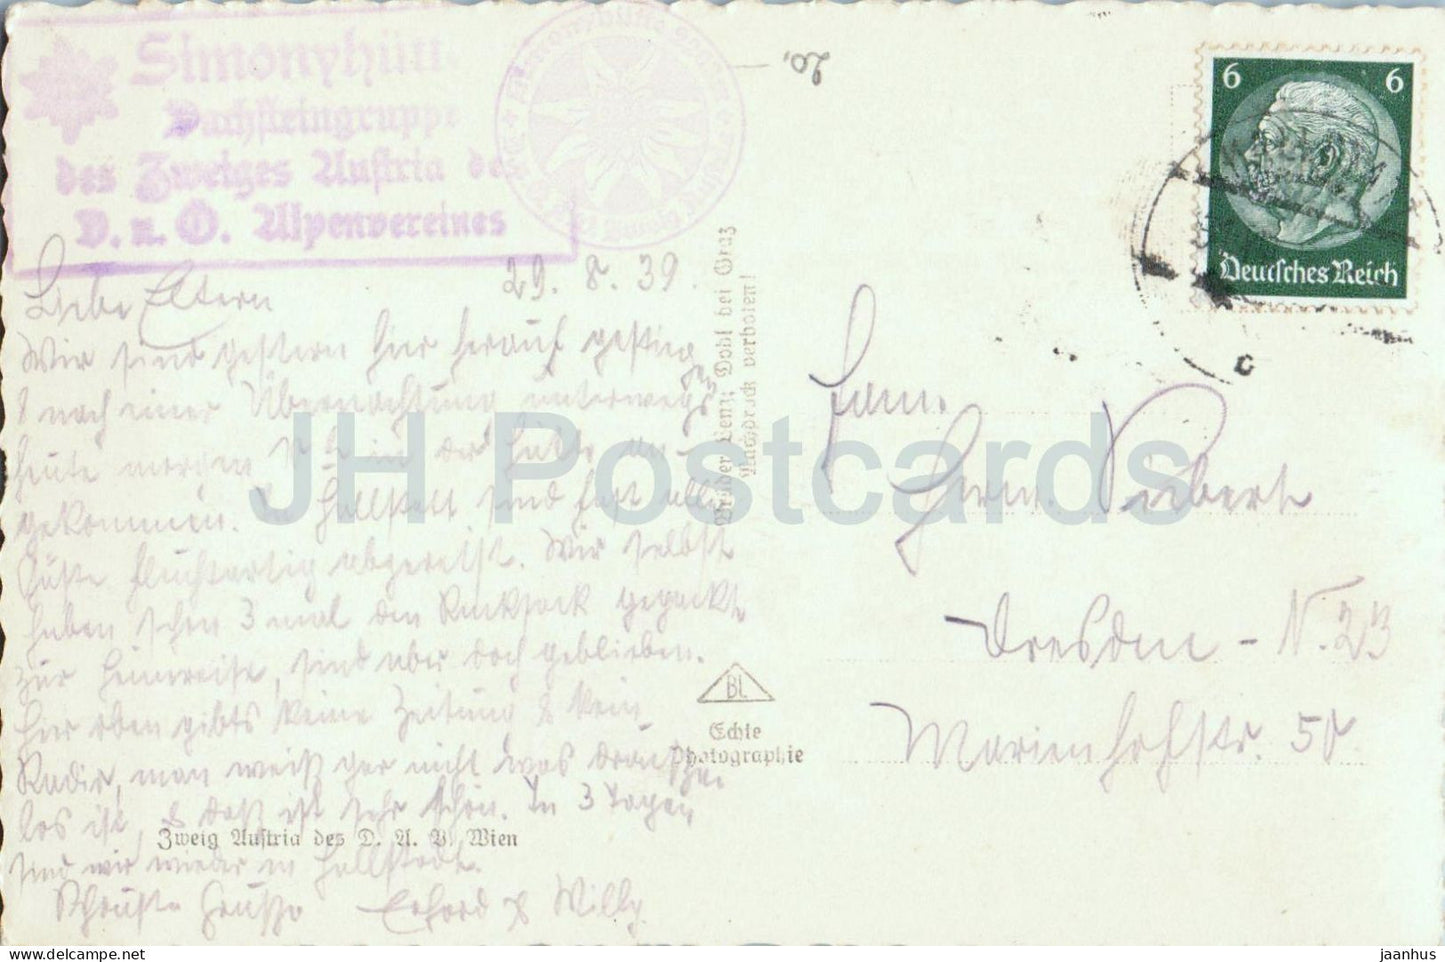 Simonyhütte
Dachsteingruppe
des Zweiges Austria des
D. u. Ö. Alpenvereines
20,
6 6
Deutsches Reich
29. 8. 39.
Liebe Eltern
Wir sind gestern hier herauf gestiegen
& nach einer Übernachtung unterwegs
heute morgen in der Hütte an-
gekommen. Hallstatt sind fast alle
Gäste fluchtartig abgereist. Wir selbst
haben schon 3 mal den Rucksack gepackt
zur Heimreise, sind aber doch geblieben.
Hier oben gibts keine Zeitung & kein
Radio, man weiß gar nicht was draußen
los ist, & das ist sehr schön. In 3 Tagen
sind wir wieder in Hallstadt.
Grüße Erhard & Willy.
Zweig Austria des D. A. V. Wien
Brüder Lenz, Dobl bei Graz
Nachdruck verboten!
BL
Echte
Photographie
Fam.
Herm.
Dresden - N. 23
Marienhofstr. 50
JH Postcards
jaanhus